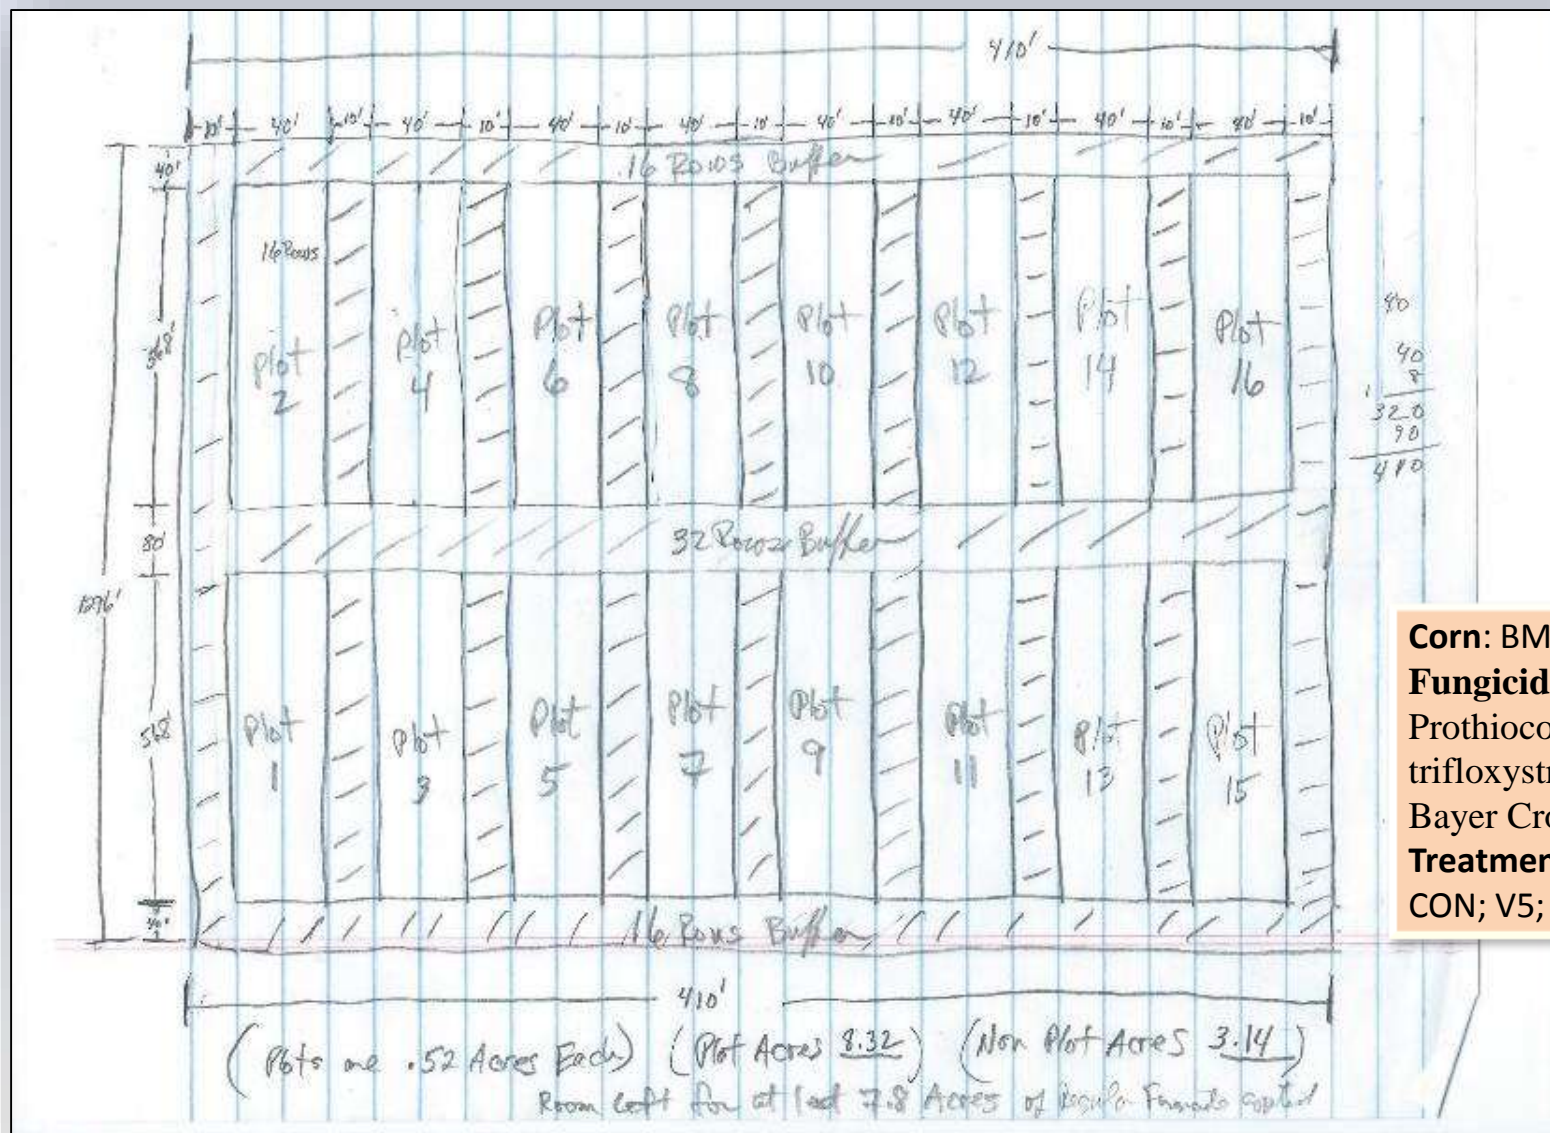 410'
10' 40' 10' 40' 10' 40' 10' 40' 10' 40' 10' 40' 10' 40' 10' 40' 10'
40'
16 Rows Buffer
16 Rows
568'
Plot 2
Plot 4
Plot 6
Plot 8
Plot 10
Plot 12
Plot 14
Plot 16
40
8
320
90
410
80'
32 Rows Buffer
1296'
568'
Plot 1
Plot 3
Plot 5
Plot 7
Plot 9
Plot 11
Plot 13
Plot 15
40'
16 Rows Buffer
410'
(Plots are .52 Acres Each) (Plot Acres 8.32) (Non Plot Acres 3.14)
Room left for at least 7.8 Acres of
Corn: BM
Fungicid
Prothioco
trifloxystr
Bayer Cro
Treatmen
CON; V5;